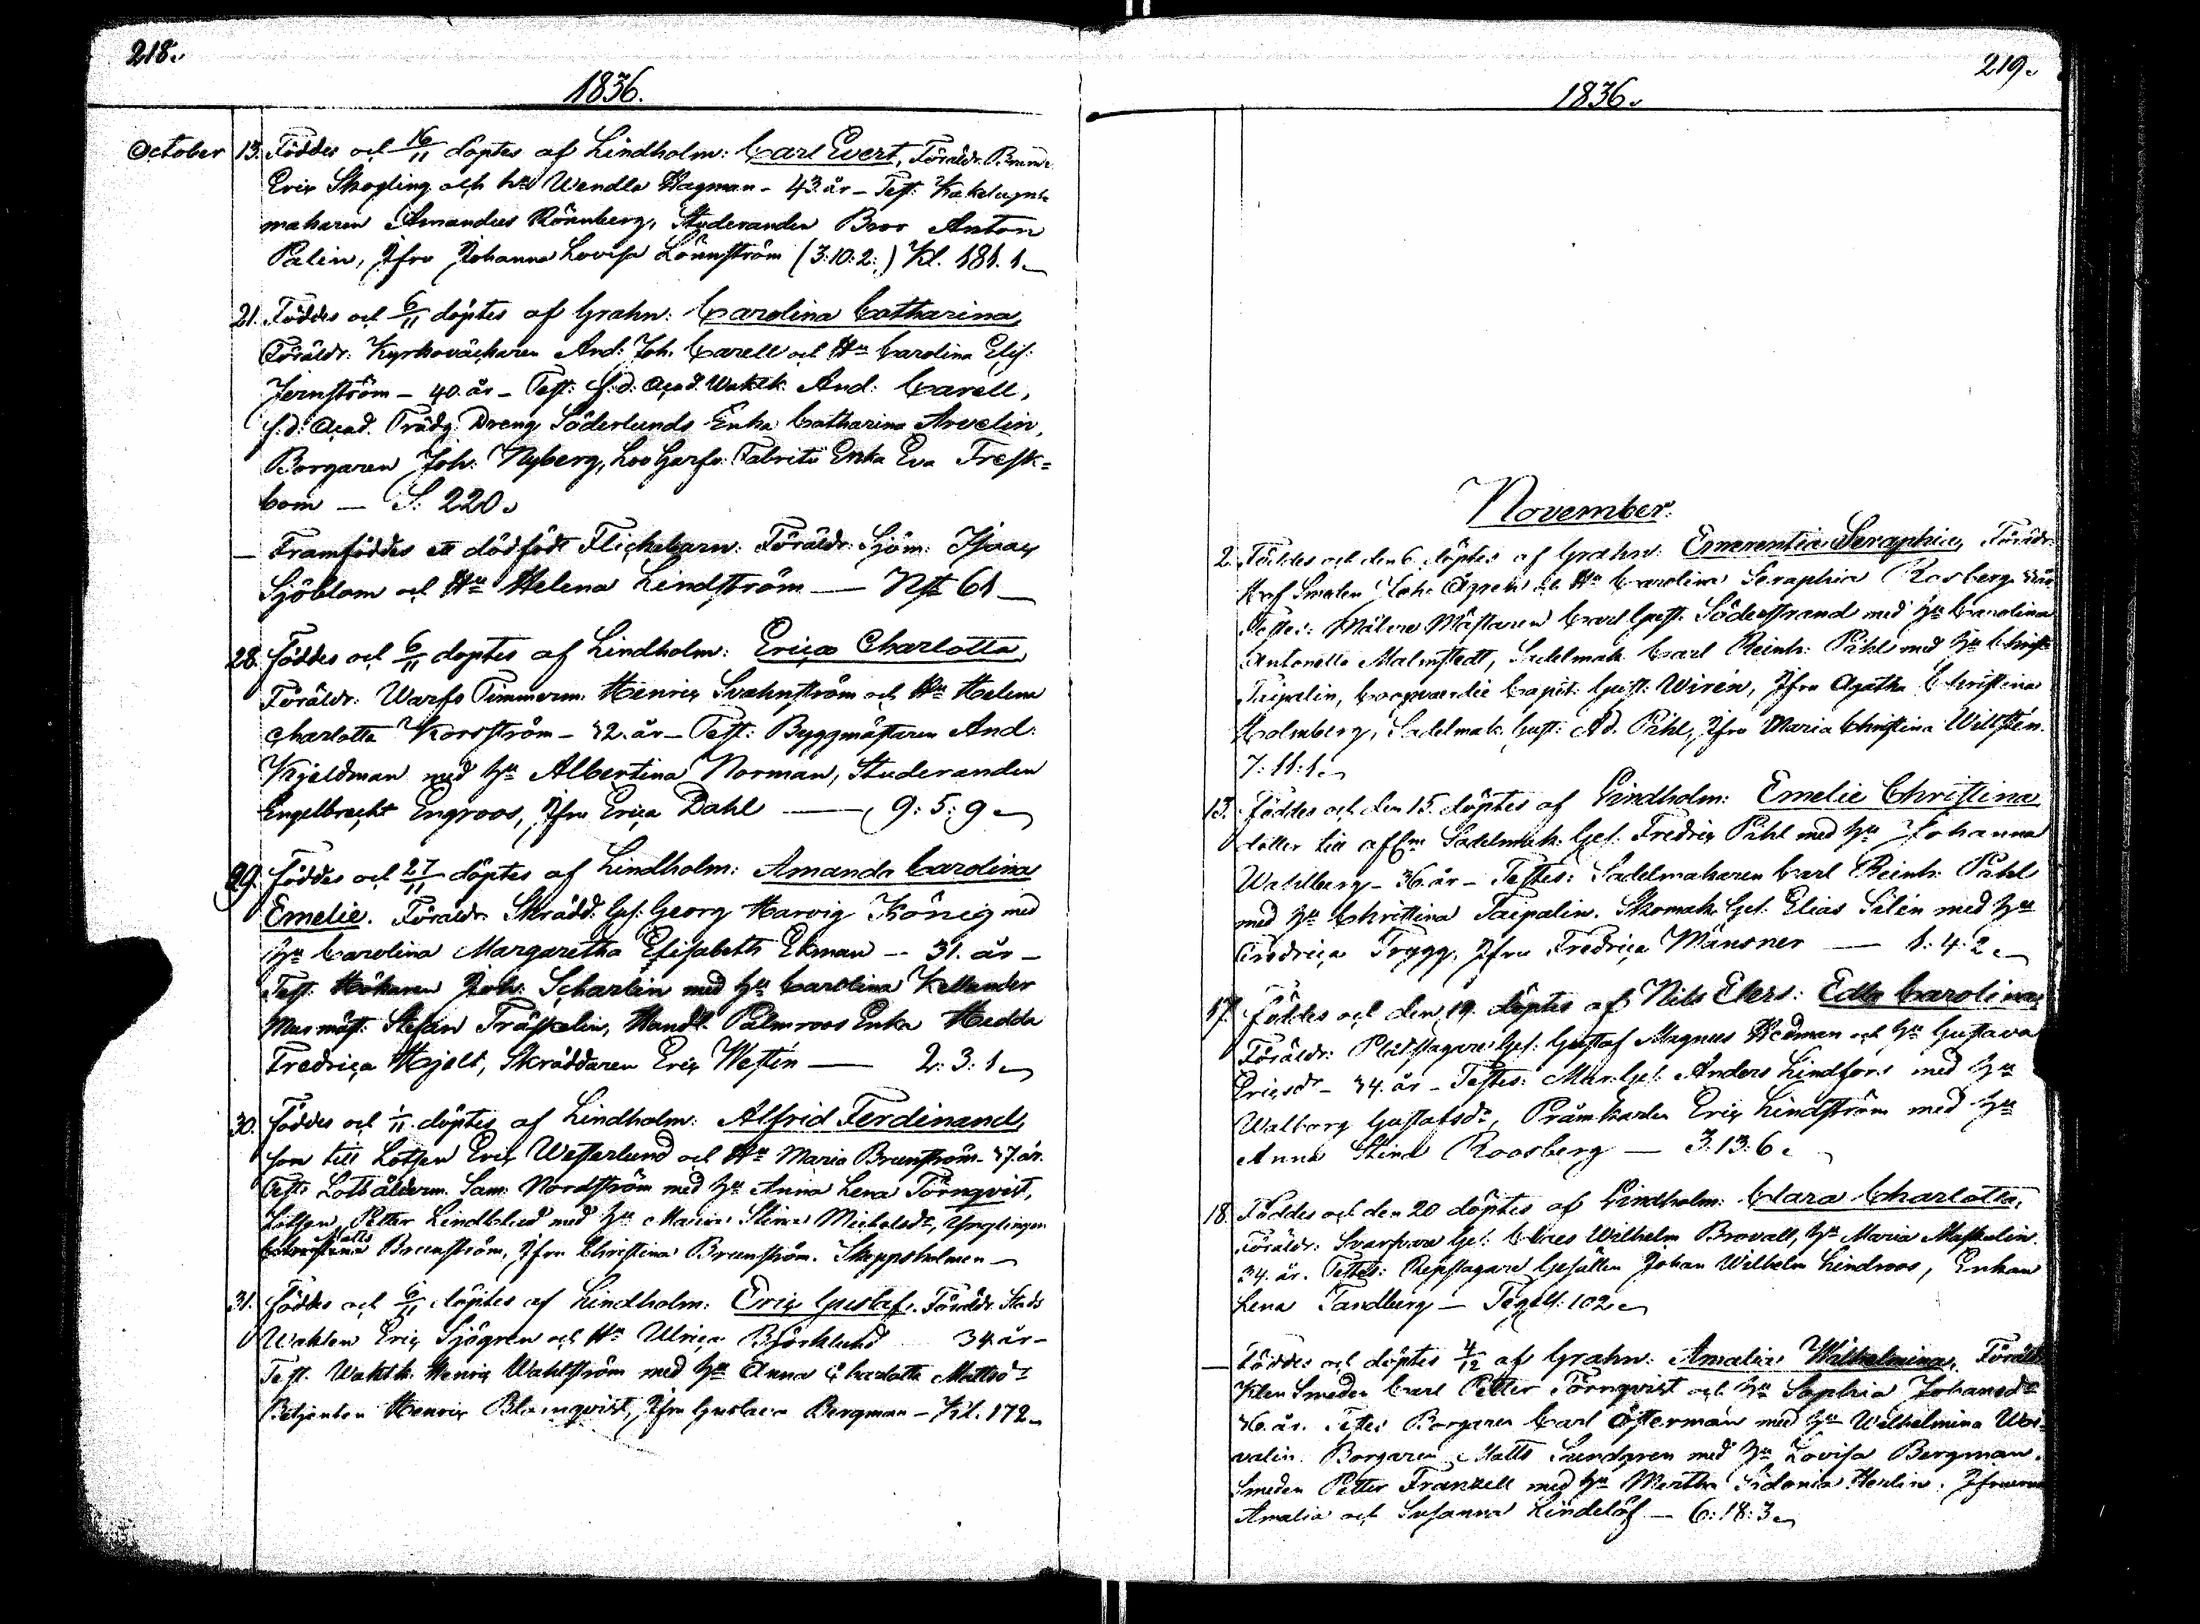 218.
1836.
October 13. Föddes och 16/11 döptes af Lindholm: Carl Evert, Föräldr.
Eric Skogling och hu Wendla Hagman - 43 år - Test: Kakelugns
makaren Amandus Rönnberg, Studeranden Broo Anton
Palin, Jfru Johanna Lovisa Lönnström (3:10:2:) Kl. 181.1.
21. Föddes och 6/11 döptes af Grahn: Carolina Catharina,
Föräldr: Kyrkoväcktaren And: Joh. Carell och Hu Carolina Elis:
Jernström - 40. år - Test: f.d. Acad. Waktk. And: Carell,
f.d. Acad. Trädg. Dreng Söderlunds Enka Catharina Arvelin,
Borgaren Joh: Nyberg, Enka Eva Fresk=
bom - S: 220.
- Framföddes ett dödfödt Flickebarn: Föräldr: Sjöm: Isaac
Sjöblom och Hu Helena Lindström - 61
28. Föddes och 6/11 döptes af Lindholm: Erica Charlotta,
Föräldr: Warfs Timmerm. Henric Svahnström och Hu Helena
Charlotta Korsström - 32. år - Test: Byggmästaren And:
Kjeldman med hu Albertina Norman, Studeranden
Engelbrecht Engroos, Jfru Erica Dahl - 9:5:9
29. Föddes och 27/11 döptes af Lindholm: Amanda Carolina
Emelie. Föräldr. Skrädd. Ges: Georg Harvig König med
hu Carolina Margaretha Elisabeth Ekman - 31. år -
Test: Hökaren Joh: Scharlin med hu Carolina Kellander
Murmäst: Stefan Träskelin, Handl. Palmroos Enka Hedda
Fredrica Hjelt, Skräddaren Eric Westin - 2:3:1
30. Föddes och 1/11 döptes af Lindholm: Alfrid Ferdinand,
son till Lotsen Eric Westerlund och Hu Maria Brunström - 37. år.
Test: Lotsålderm. Sam: Nordström med hu Anna Lena Törnqvist,
Lotsen Petter Lindblad med hu Maria Stina Michelsdr, Ynglingen
Matts
Brunström, Jfru Christina Brunström. Skeppsholmen
31. Föddes och 6/11 döptes af Lindholm: Eric Gustaf. Föräldr. Stads
Wakten Eric Sjögren och Hu Ulrica Björklund 34 år -
Test. Waktk. Henric Wahlström med hu Anna Charlotta Mattsdr
Betjenten Henric Blomqvist, Jfru Gustava Bergman - Kl. 172.
219.
1836.
November.
2. Föddes och den 6 döptes af Grahn: Emerentia Seraphia, Föräldr.
Smeden Joh: och Hu Carolina Seraphia Rosberg
Testes: Målare Mästaren Carl Gust. Söderstrand med hu Carolina
Antonetta Malmstedt, Sadelmak. Carl Reinh: Påhl med hu Christ.
Taipalin, Coopvaerdie Capit. Gust: Wirén, Jfru Agatha Christina
Holmberg, Sadelmak. Gust: Ad. Påhl, Jfru Maria Christina Willstén.
7:11:1.
13. Föddes och den 15. döptes af Lindholm: Emelie Christina
dotter till Sadelmak: Ges. Fredric Påhl med hu Johanna
Wahlberg - 36. år - Testes: Sadelmakaren Carl Reinh: Påhl
med hu Christina Taipalin. Skomak. Ges. Elias Silén med hu
Fredrica Trygg, Jfru Fredrica Månsner - 1:4:2
17. Föddes och den 19. döptes af Nils Ekers: Edla Carolina
Föräldr: Plåtslagare Ges: Gustaf Magnus Hedman och hu Gustava
Ericsdr - 34. år - Testes: Mur. Ges. Anders Lindfors med hu
Walborg Gustafsdr, Pråmkarlen Eric Lindström med hu
Anna Stina Roosberg - 3.13.6.
18. Föddes och den 20 döptes af Lindholm: Clara Charlotta,
Föräldr: Svarfvare Ges. Claes Wilhelm Brovall, hu Maria Maskelin.
34. år. Testes: Repslagare Gesällen Johan Wilhelm Lindroos, Enkan
Lena Tandberg - 102
- Föddes och döptes 4/12 af Grahn: Amalia Wilhelmina, Föräldr
Klen Smeden Carl Petter Törnqvist och hu Sophia Johansdr
36. år. Testes Borgaren Carl Österman med hu Wilhelmina Wa=
valin. Borgaren Matts Sundgren med hu Lovisa Bergman.
Smeden Petter Franzell med hu Martha Sidonia Herlin. Jfruerna
Amalia och Susanna Lindelöf - 6:18:3